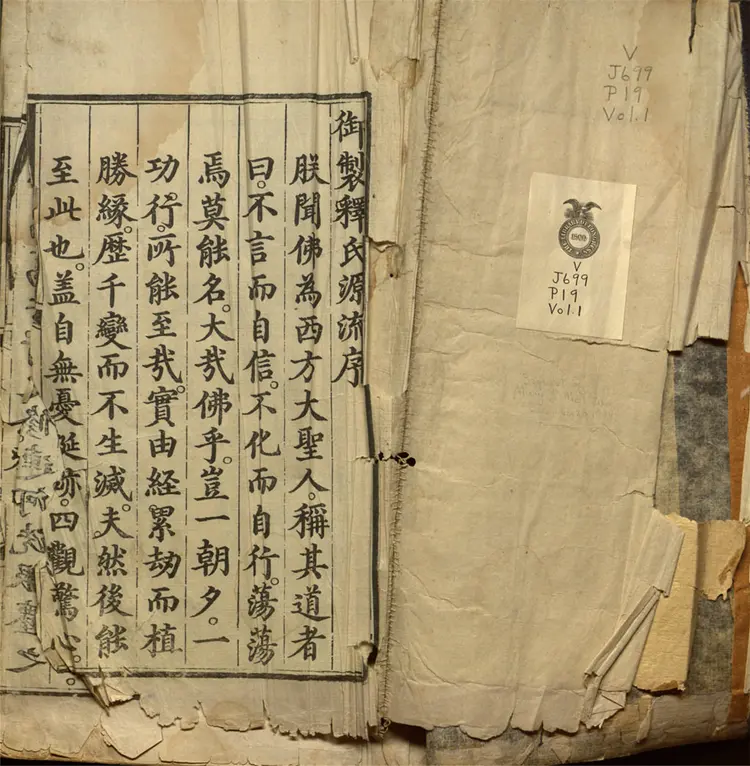 V
J699
P19
Vol.1
THE LIBRARY OF CONGRESS
1800
V
J699
P19
Vol.1
御製釋氏源流序
朕聞佛為西方大聖人。稱其道者
曰。不言而自信。不化而自行。蕩蕩
焉莫能名。大哉佛乎。豈一朝夕。一
功。行。所能至哉。實由経累劫而植
勝緣。歷千變而不生滅。夫然後能
至此也。盖自無憂誕迹。四觀驚心。